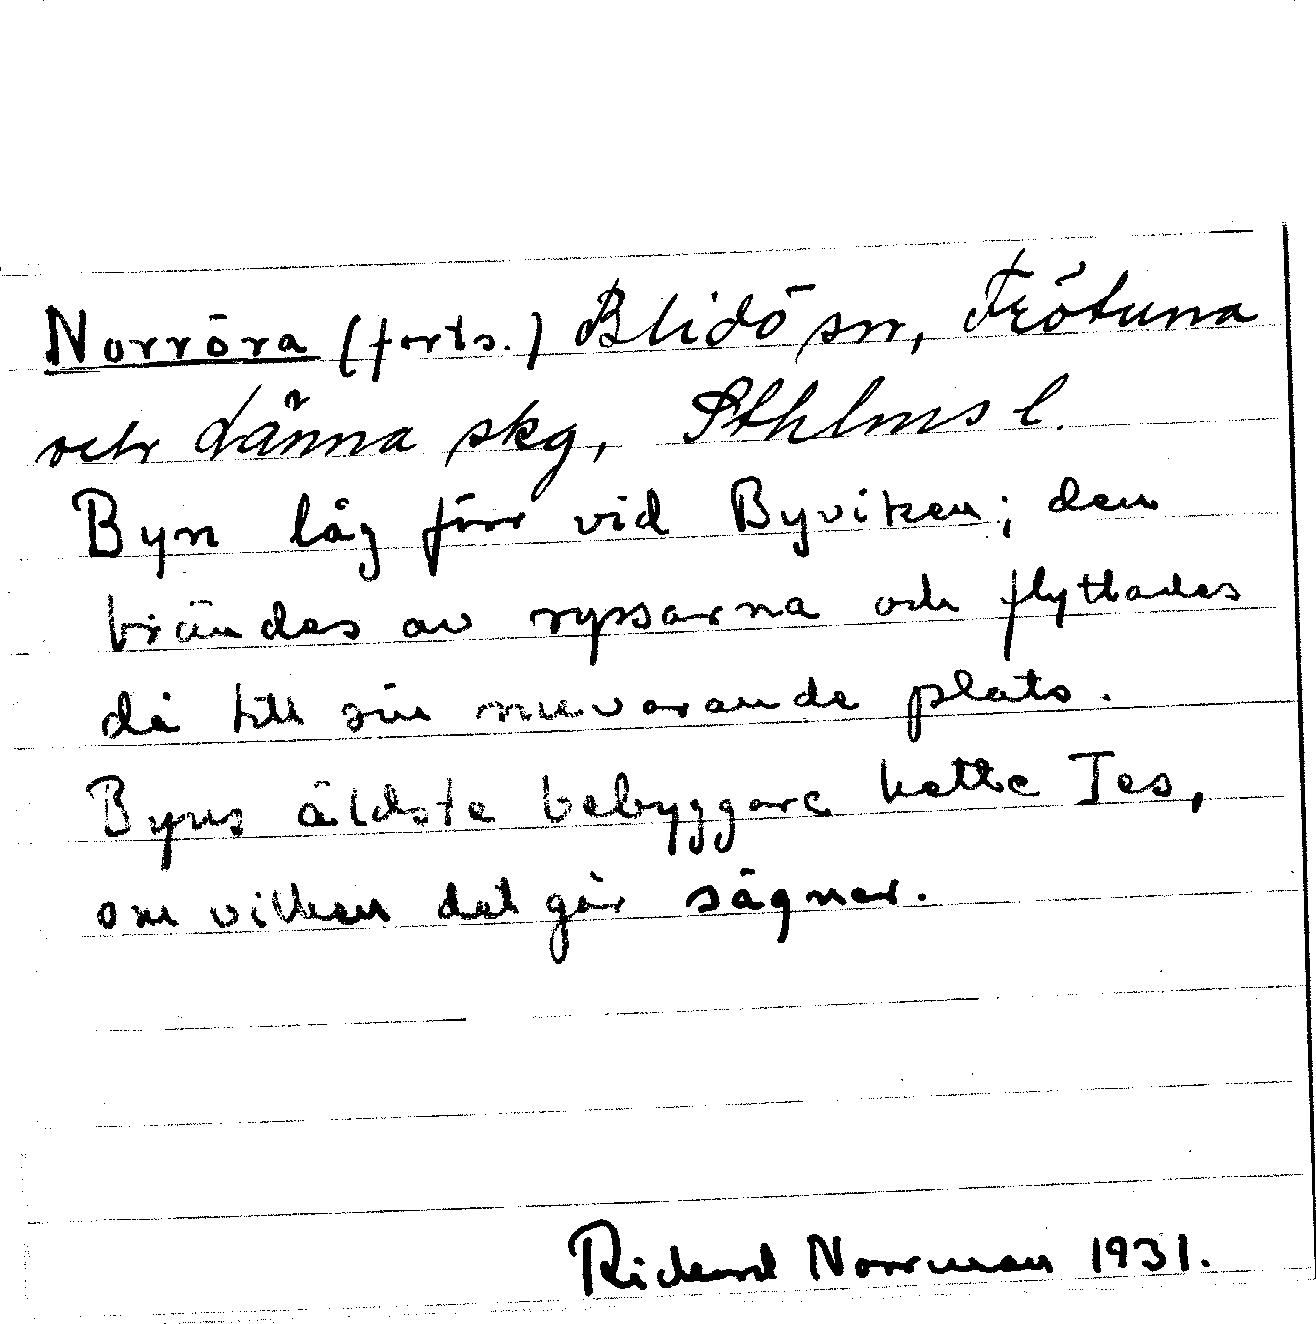 Norröra (forts.) Blidö sn, Frötuna
och Länna skg, Sthlms l.
Byn låg förr vid Byviken; den
brändes av ryssarna och flyttades
då till sin nuvarande plats.
Byns äldste bebyggare hette Jes,
om vilken det går sägner.
Rickard Norrman 1931.